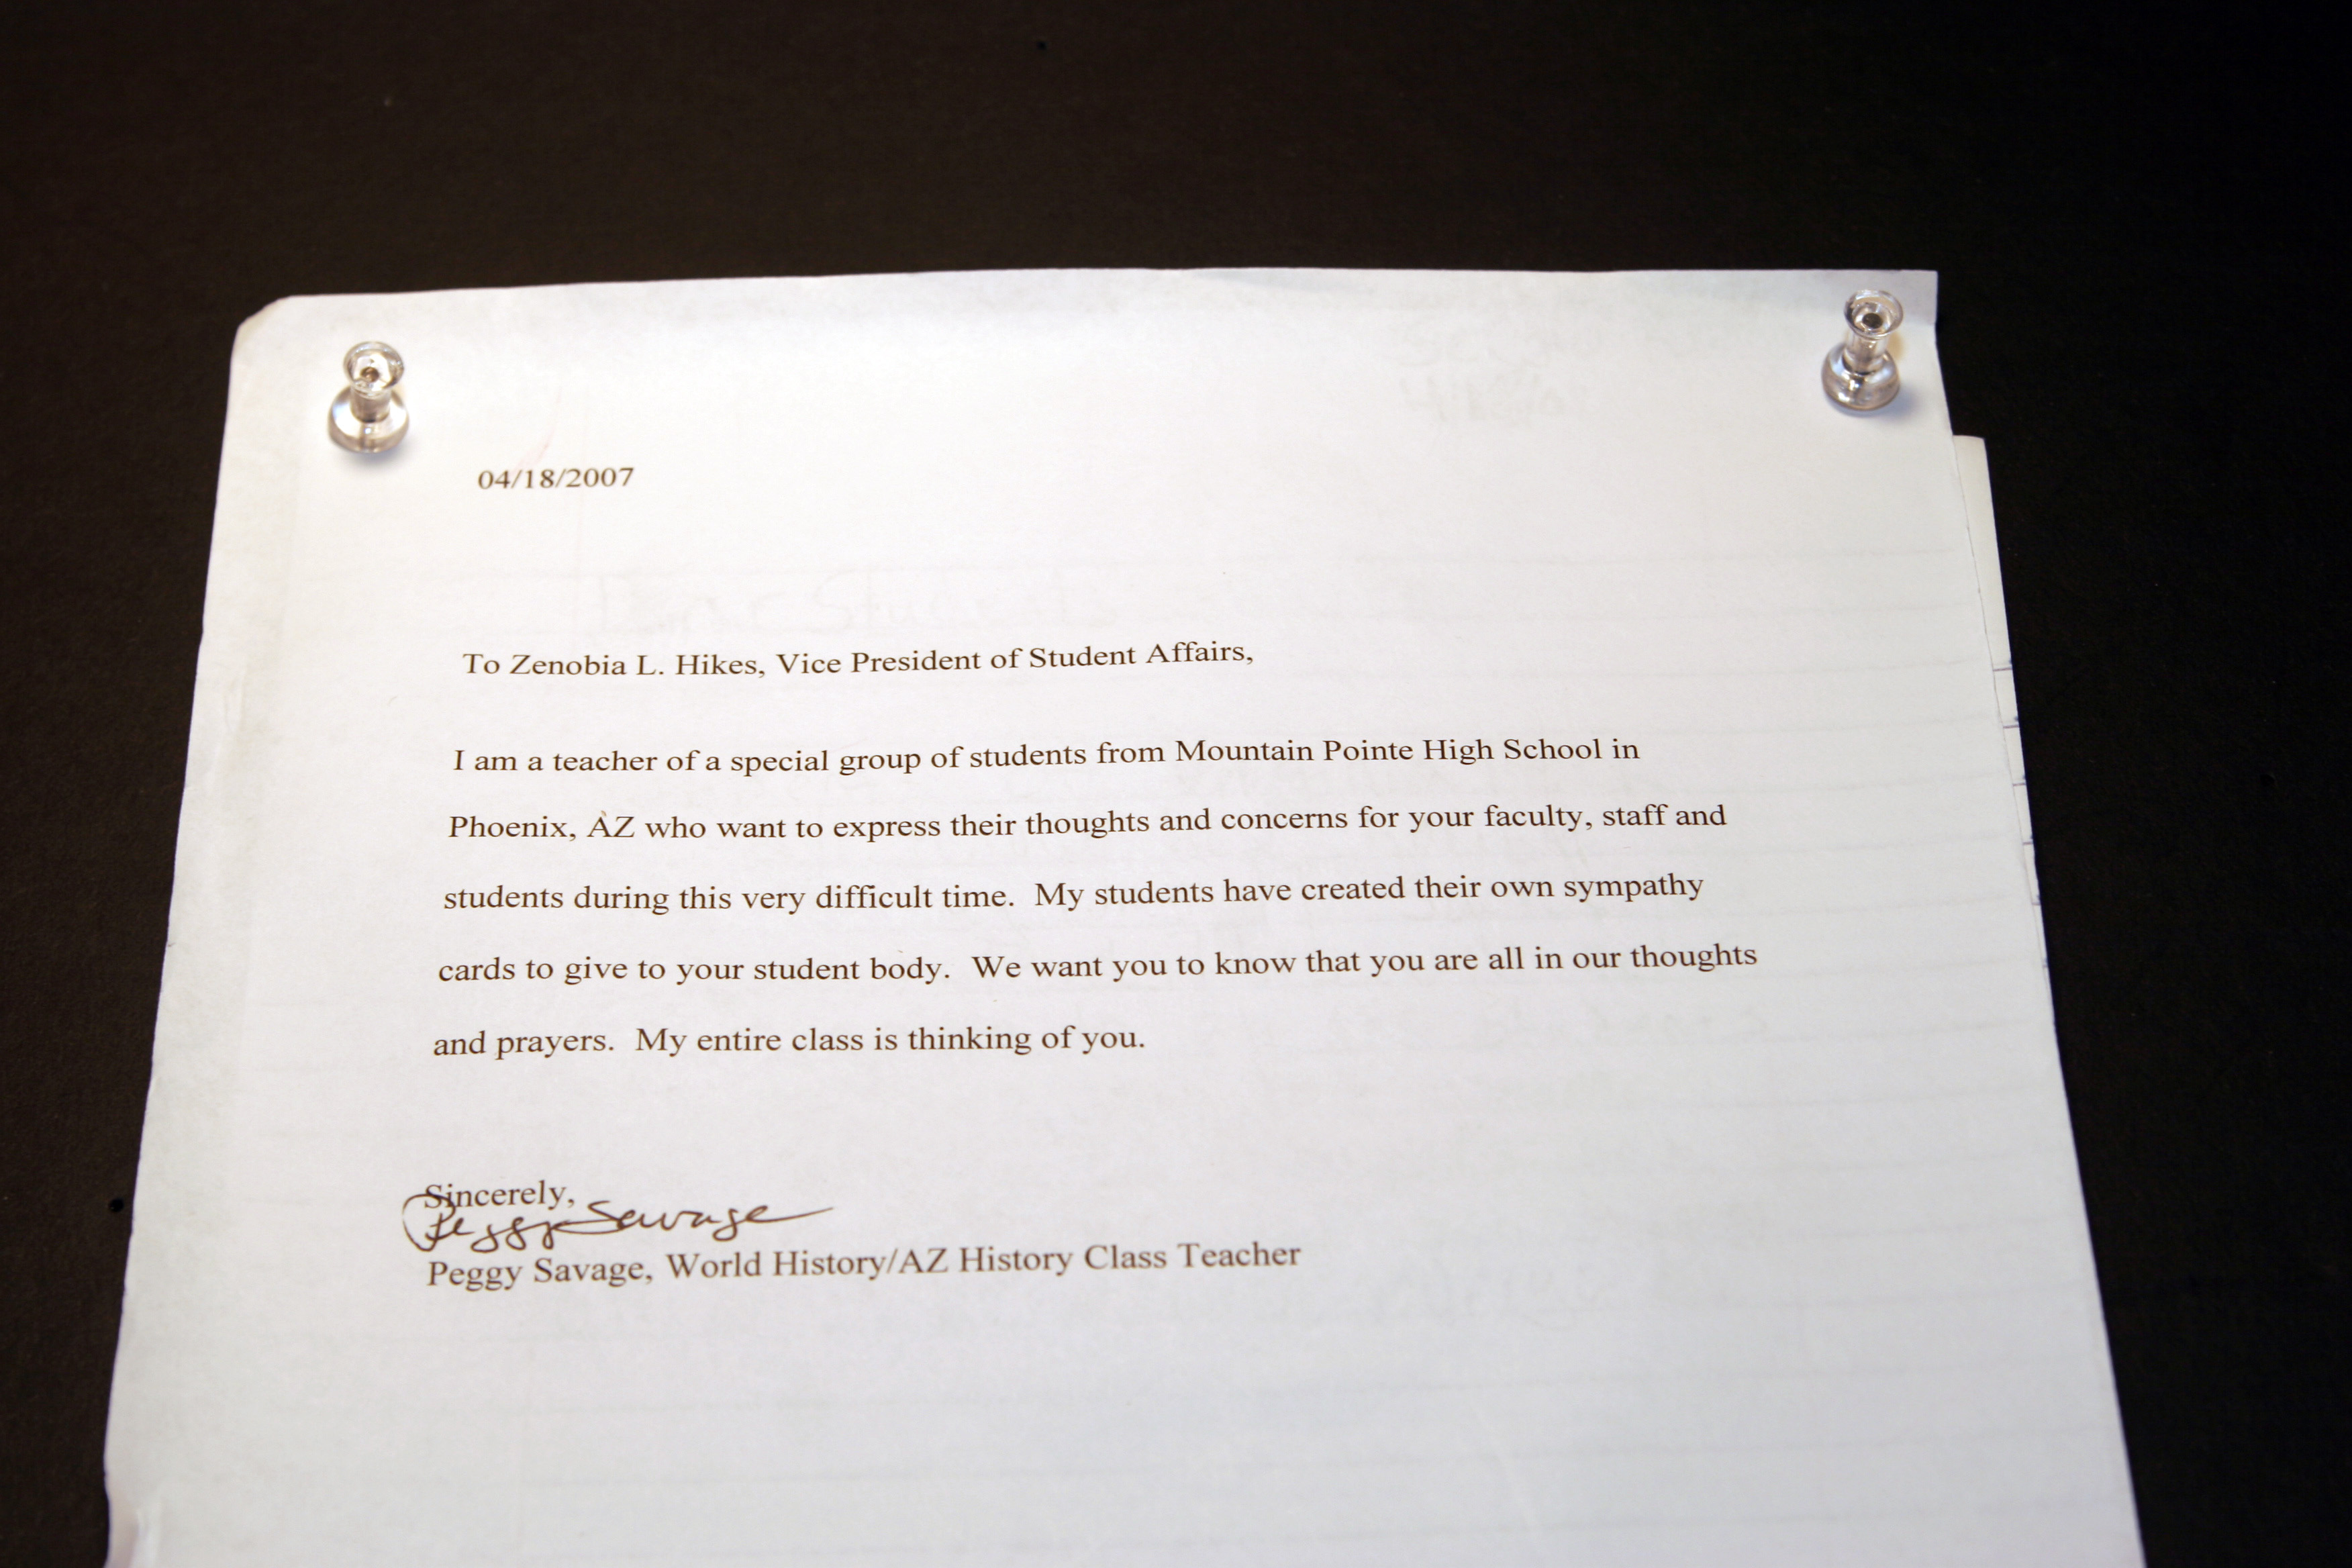 04/18/2007
To Zenobia L. Hikes, Vice President of Student Affairs,
I am a teacher of a special group of students from Mountain Pointe High School in
Phoenix, AZ who want to express their thoughts and concerns for your faculty, staff and
students during this very difficult time. My students have created their own sympathy
cards to give to your student body. We want you to know that you are all in our thoughts
and prayers. My entire class is thinking of you.
Sincerely,
Peggy Savage
Peggy Savage, World History/AZ History Class Teacher